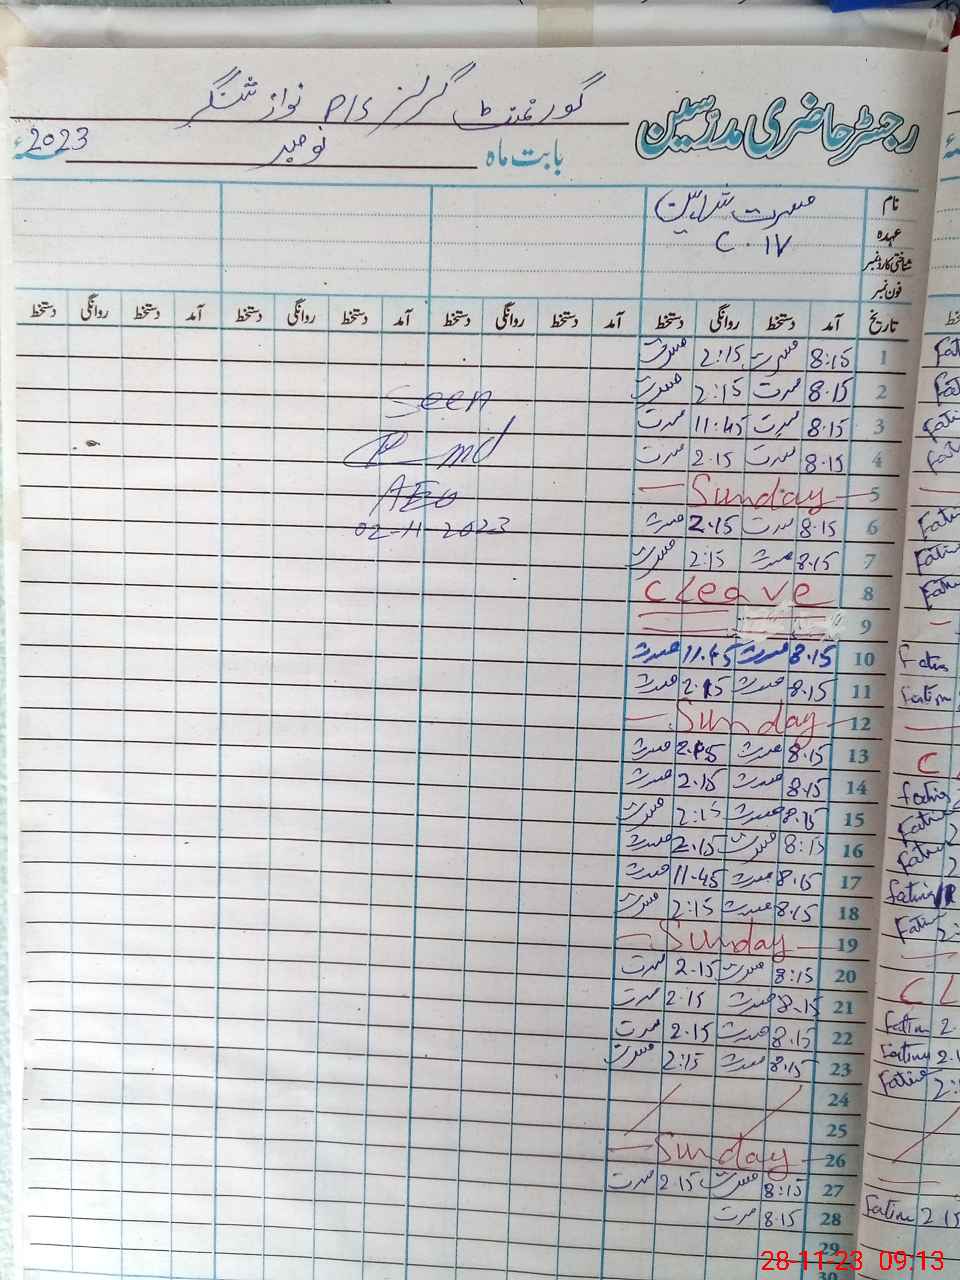 رجسٹر حاضری مدرسین
گورنمنٹ گرلز P/S نواز شنگر
بابت ماہ نومبر 2023ء
نام مسرت شاہین
عہدہ C.IV
شناختی کارڈ نمبر
فون نمبر
تاریخ آمد دستخط روانگی دستخط آمد دستخط روانگی دستخط آمد دستخط روانگی دستخط
1 8:15 مسرت 2:15 مسرت
2 8.15 مسرت 2:15 مسرت
3 8.15 مسرت 11:45 مسرت
4 8.15 مسرت 2.15 مسرت
5 Sunday
6 8.15 مسرت 2.15 مسرت
7 8.15 مسرت 2:15 مسرت
8 C Leave
9
10 8.15 مسرت 11.45 مسرت
11 8.15 مسرت 2.15 مسرت
12 Sunday
13 8.15 مسرت 2.15 مسرت
14 8.15 مسرت 2.15 مسرت
15 8.15 مسرت 2:15 مسرت
16 8:15 مسرت 2.15 مسرت
17 8.15 مسرت 11.45 مسرت
18 8.15 مسرت 2:15 مسرت
19 Sunday
20 8:15 مسرت 2.15 مسرت
21 8.15 مسرت 2.15 مسرت
22 8.15 مسرت 2.15 مسرت
23 8.15 مسرت 2:15 مسرت
24
25
26 Sunday
27 8:15 مسرت 2.15 مسرت
28 8.15 مسرت
29
30
Seen
AEO
02-11-2023
28-11-23 09:13